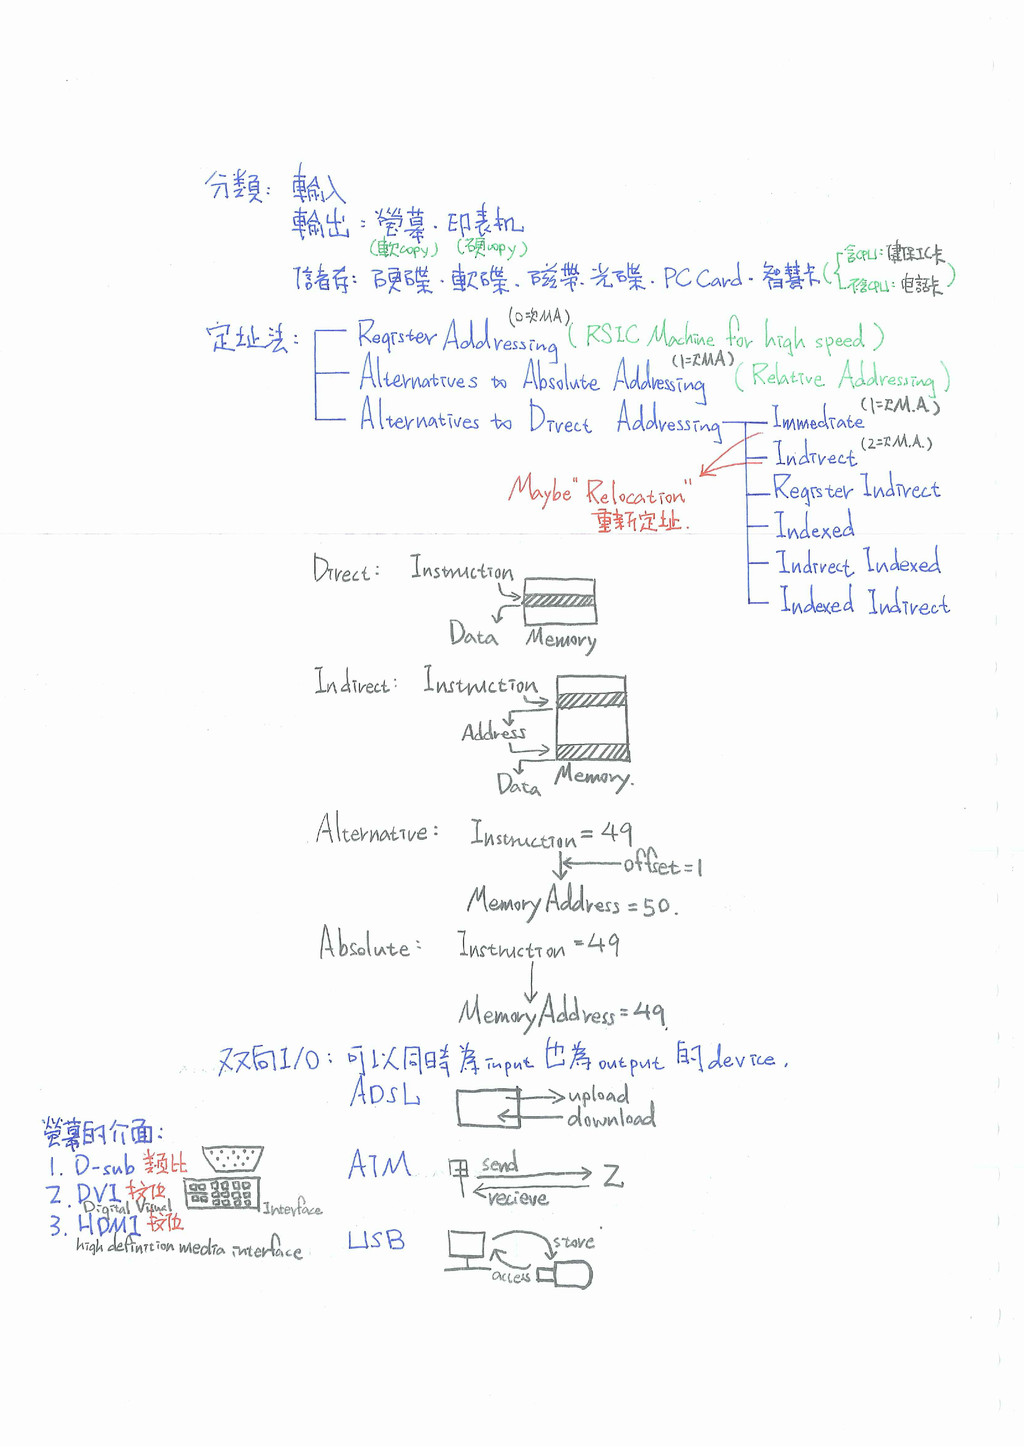 分類: 輸入
輸出: 螢幕．印表机
(軟copy) (硬copy)
儲存: 硬碟．軟碟．磁帶．光碟．PC Card．智慧卡
含CPU: 健保IC卡
不含CPU: 電話卡
定址法:
Register Addressing (0次MA) (RSIC Machine for high speed)
Alternatives to Absolute Addressing (1次MA) (Relative Addressing)
Alternatives to Direct Addressing
Immediate (1次M.A.)
Indirect (2次M.A.)
Register Indirect
Indexed
Indirect Indexed
Indexed Indirect
Maybe "Relocation"
重新定址.
Direct: Instruction
Data Memory
Indirect: Instruction
Address
Data Memory.
Alternative: Instruction = 49
offset=1
Memory Address = 50.
Absolute: Instruction = 49
Memory Address = 49.
双向I/O: 可以同時為input也為output的device.
ADSL upload
download
ATM send
recieve Z
USB store
access
螢幕的介面:
1. D-sub 類比
2. DVI 按位
Digital Visual Interface
3. HDMI 按位
high definition media interface